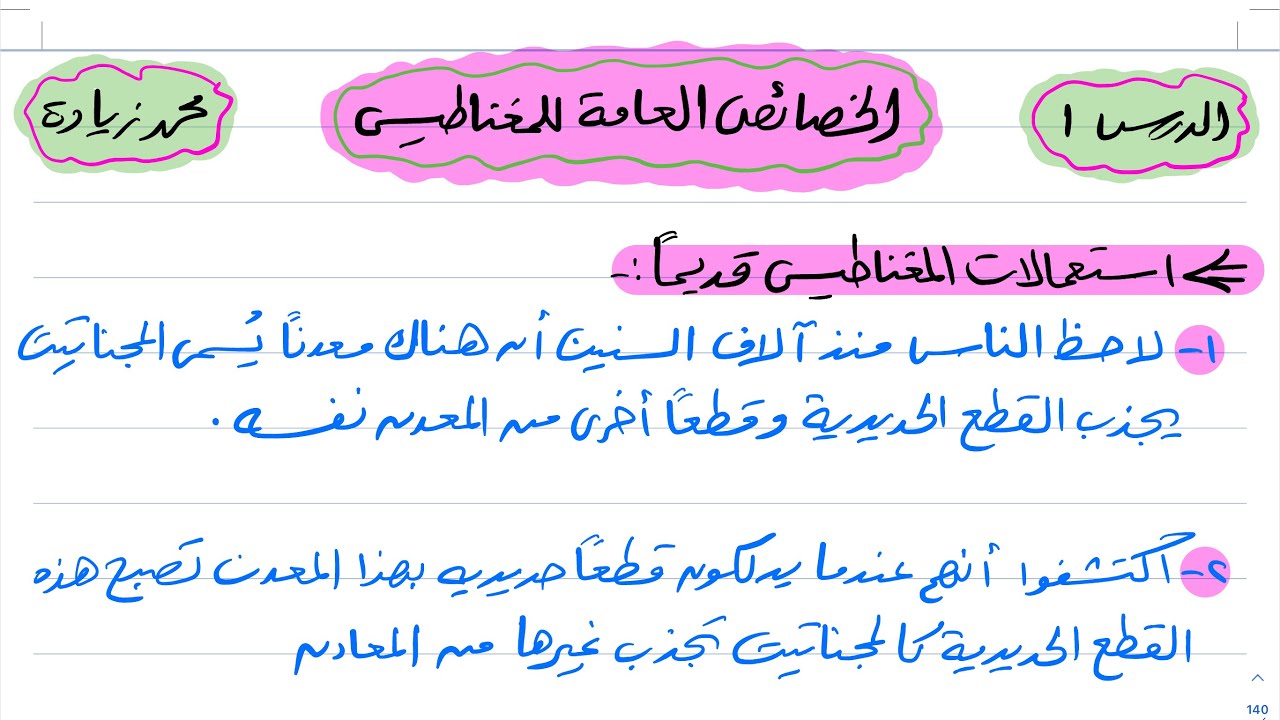 الدرس ١
الخصائص العامة للمغناطيس
محمد زيادة
استعمالات المغناطيس قديماً :-
١- لاحظ الناس منذ آلاف السنين أن هناك معدناً يُسمى المجناتيت
يجذب القطع الحديدية وقطعاً أخرى من المعدن نفسه .
٢- اكتشفوا أنهم عندما يدلكون قطعاً حديديه بهذا المعدن تصبح هذه
القطع الحديدية كالمجناتيت تجذب غيرها من المعادن
140